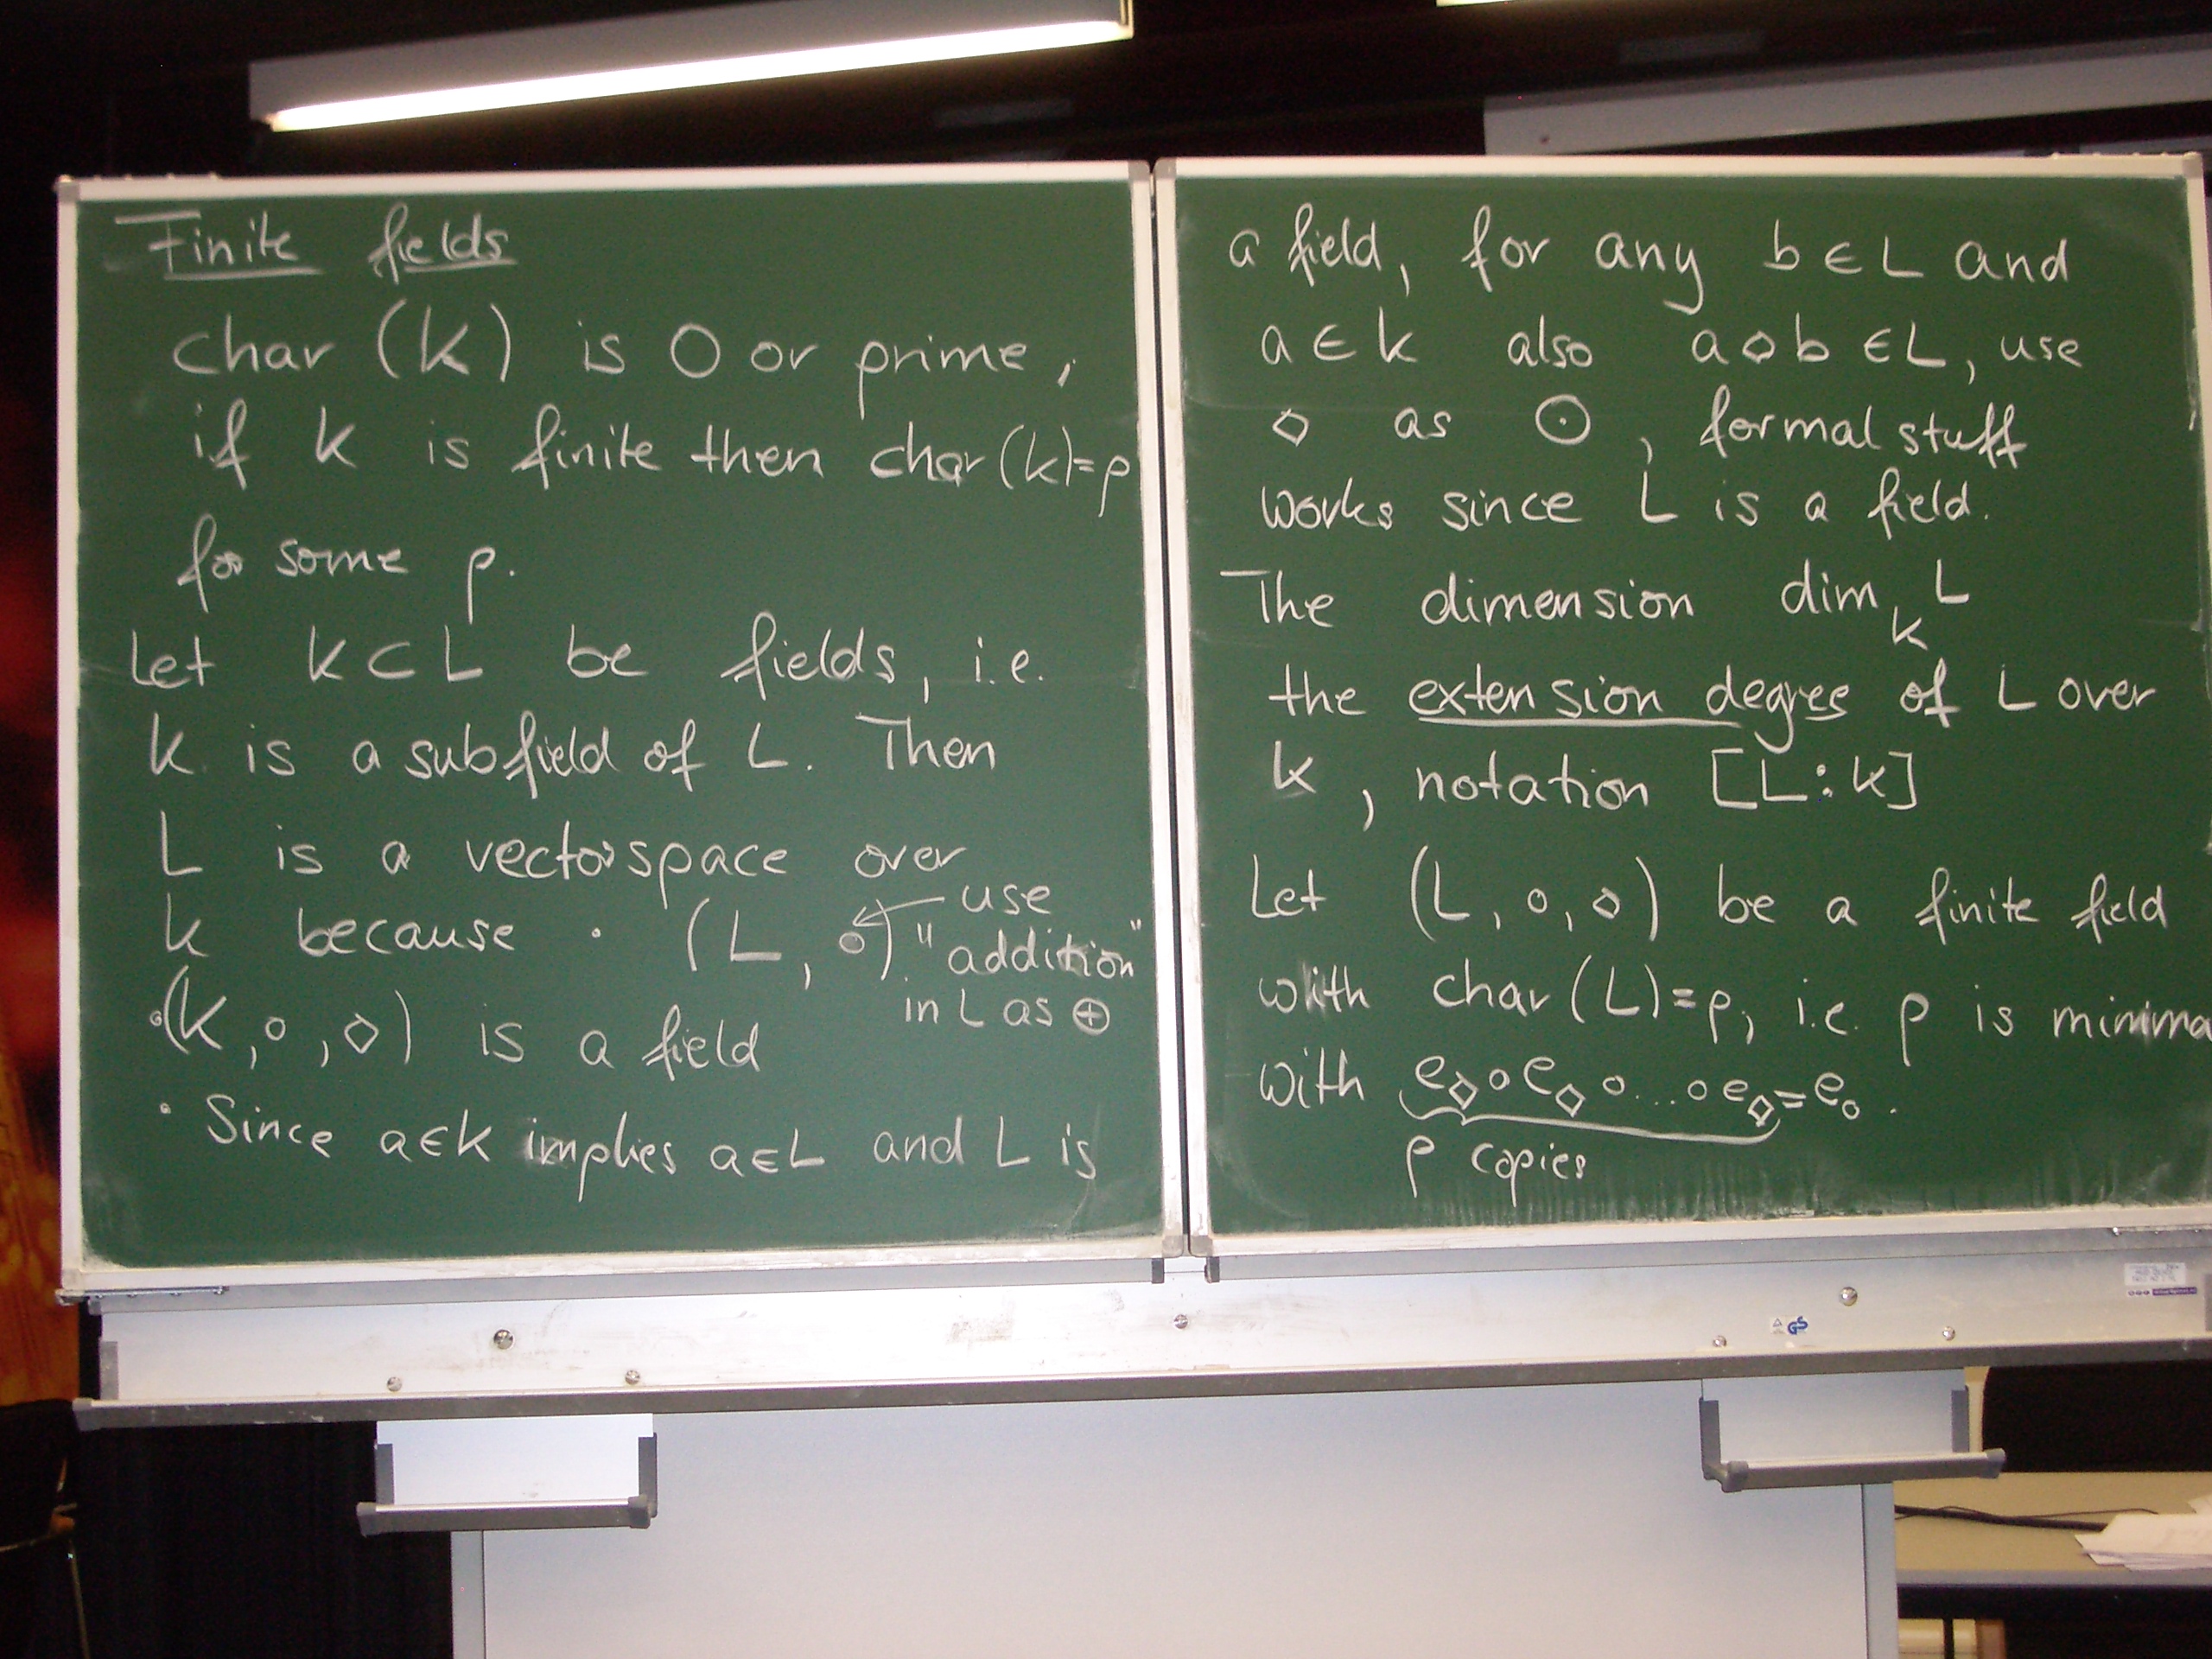 Finite fields
char (K) is 0 or prime,
if K is finite then char (K)=p
for some p.
Let K ⊂ L be fields, i.e.
K is a subfield of L. Then
L is a vectorspace over
K because · (L, ∘) ← use
"addition"
in L as ⊕
∘ (K, ∘, ◇) is a field
· Since a∈K implies a∈L and L is
a field, for any b∈L and
a∈K also a◇b∈L, use
◇ as ⊙, formal stuff
works since L is a field.
The dimension dim_K L
the extension degree of L over
K, notation [L:K]
Let (L, ∘, ◇) be a finite field
with char (L)=p, i.e. p is minima
with e_◇ ∘ e_◇ ∘ ... ∘ e_◇ = e_∘.
p copies
GS